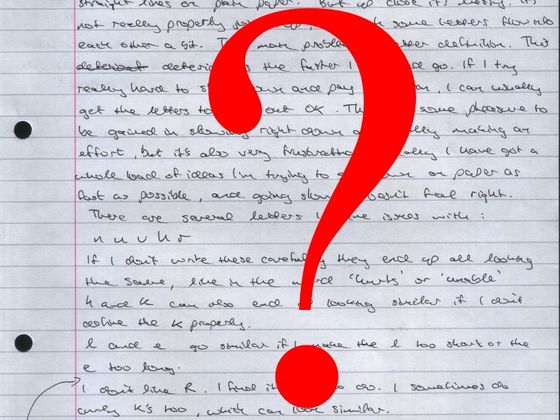 straight lines on plain paper. But up close it's messy. It's
not really properly joined up, some letters flow into
each other a bit. The main problem letter definition. This
deteriorates the further I go. If I try
really hard to slow down and pay, I can usually
get the letters to out OK. some pleasure to
be gained in slowing right down really making an
effort, but it's also very frustrating I have got a
whole load of ideas I'm trying to on paper as
fast as possible, and going slow doesn't feel right.
There are several letters issues with:
n u v h r
If I don't write these carefully they end up all looking
the same, like in the word 'hurts' or 'unable'
h and K can also end up looking similar if I don't
define the K properly.
l and e go similar if I make the l too short or the
e too long.
I don't like R. I find it to do. I sometimes do
curly K's too, which can look similar.